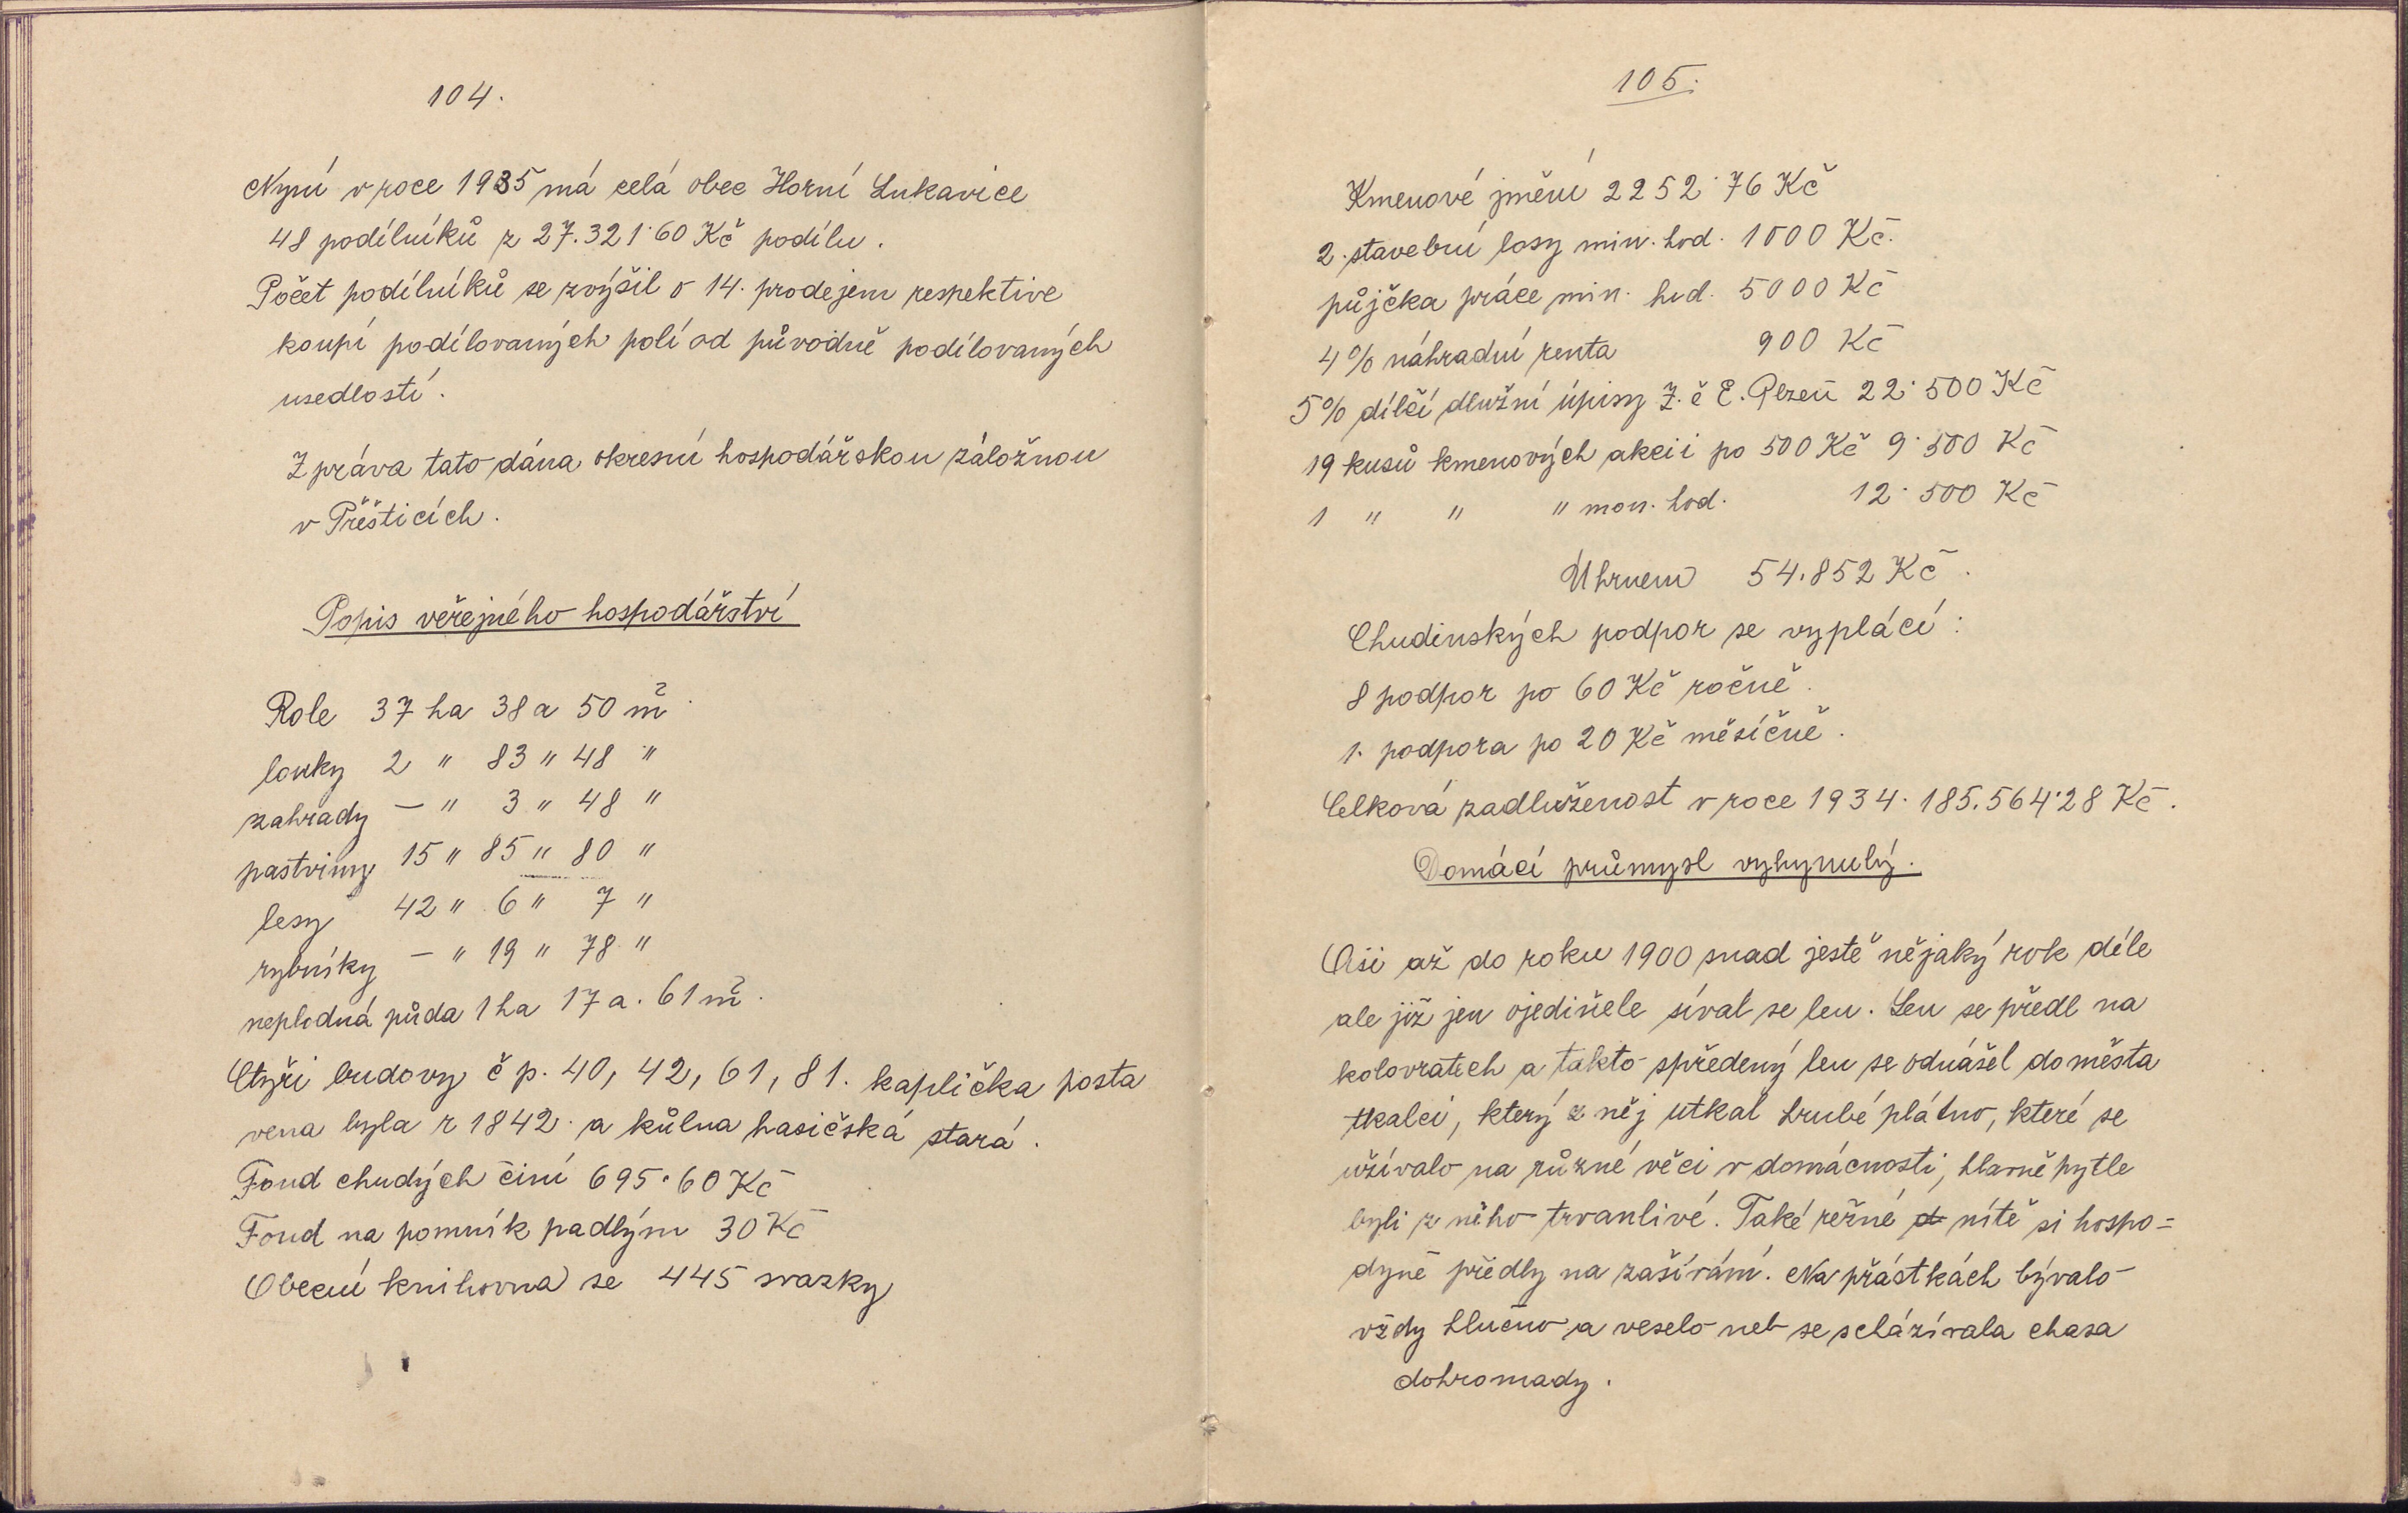 104.
Nyní v roce 1935 má celá obec Horní Lukavice
48 podílníků z 27.321·60 Kč podílu.
Počet podílníků se zvýšil o 14. prodejem respektive
koupí podílovaných polí od původně podílovaných
usedlostí.
Zpráva tato dána okresní hospodářskou záložnou
v Přešticích.
Popis veřejného hospodářství
Role 37 ha 38 a 50 m²
louky 2 " 83 " 48 "
zahrady — " 3 " 48 "
pastviny 15 " 85 " 80 "
lesy 42 " 6 " 7 "
rybníky — " 19 " 78 "
neplodná půda 1 ha 17 a. 61 m².
Čtyři budovy č p. 40, 42, 61, 81. kaplička posta
vena byla r 1842. a kůlna hasičská stará.
Fond chudých činí 695·60 Kč
Fond na pomník padlým 30 Kč
Obecní knihovna se 445 svazky
105.
Kmenové jmění 2252·76 Kč
2. stavební losy min. hod. 1000 Kč.
půjčka práce min. hod. 5000 Kč
4% náhradní renta 900 Kč
5% dílčí dlužní úpisy Z. č E. Plzeň 22·500 Kč
19 kusů kmenových akcii po 500 Kč 9·500 Kč
1 " " " mon. hod. 12·500 Kč
Úhrnem 54.852 Kč.
Chudinských podpor se vyplácí:
8 podpor po 60 Kč ročně.
1. podpora po 20 Kč měsíčně.
Celková zadluženost v roce 1934. 185.564·28 Kč.
Domácí průmysl vyhynulý.
Asi až do roku 1900 snad jestě nějaký rok déle
ale již jen ojediněle síval se len. Len se předl na
kolovratech a takto spředený len se odnášel do města
tkalci, který z něj utkal hrubé plátno, které se
užívalo na různé věci v domácnosti, hlavně pytle
byli z něho trvanlivé. Také režné nítě si hospo=
dyně předly na zašívání. Na přástkách bývalo
vždy hlučno a veselo neb se scházívala chasa
dohromady.